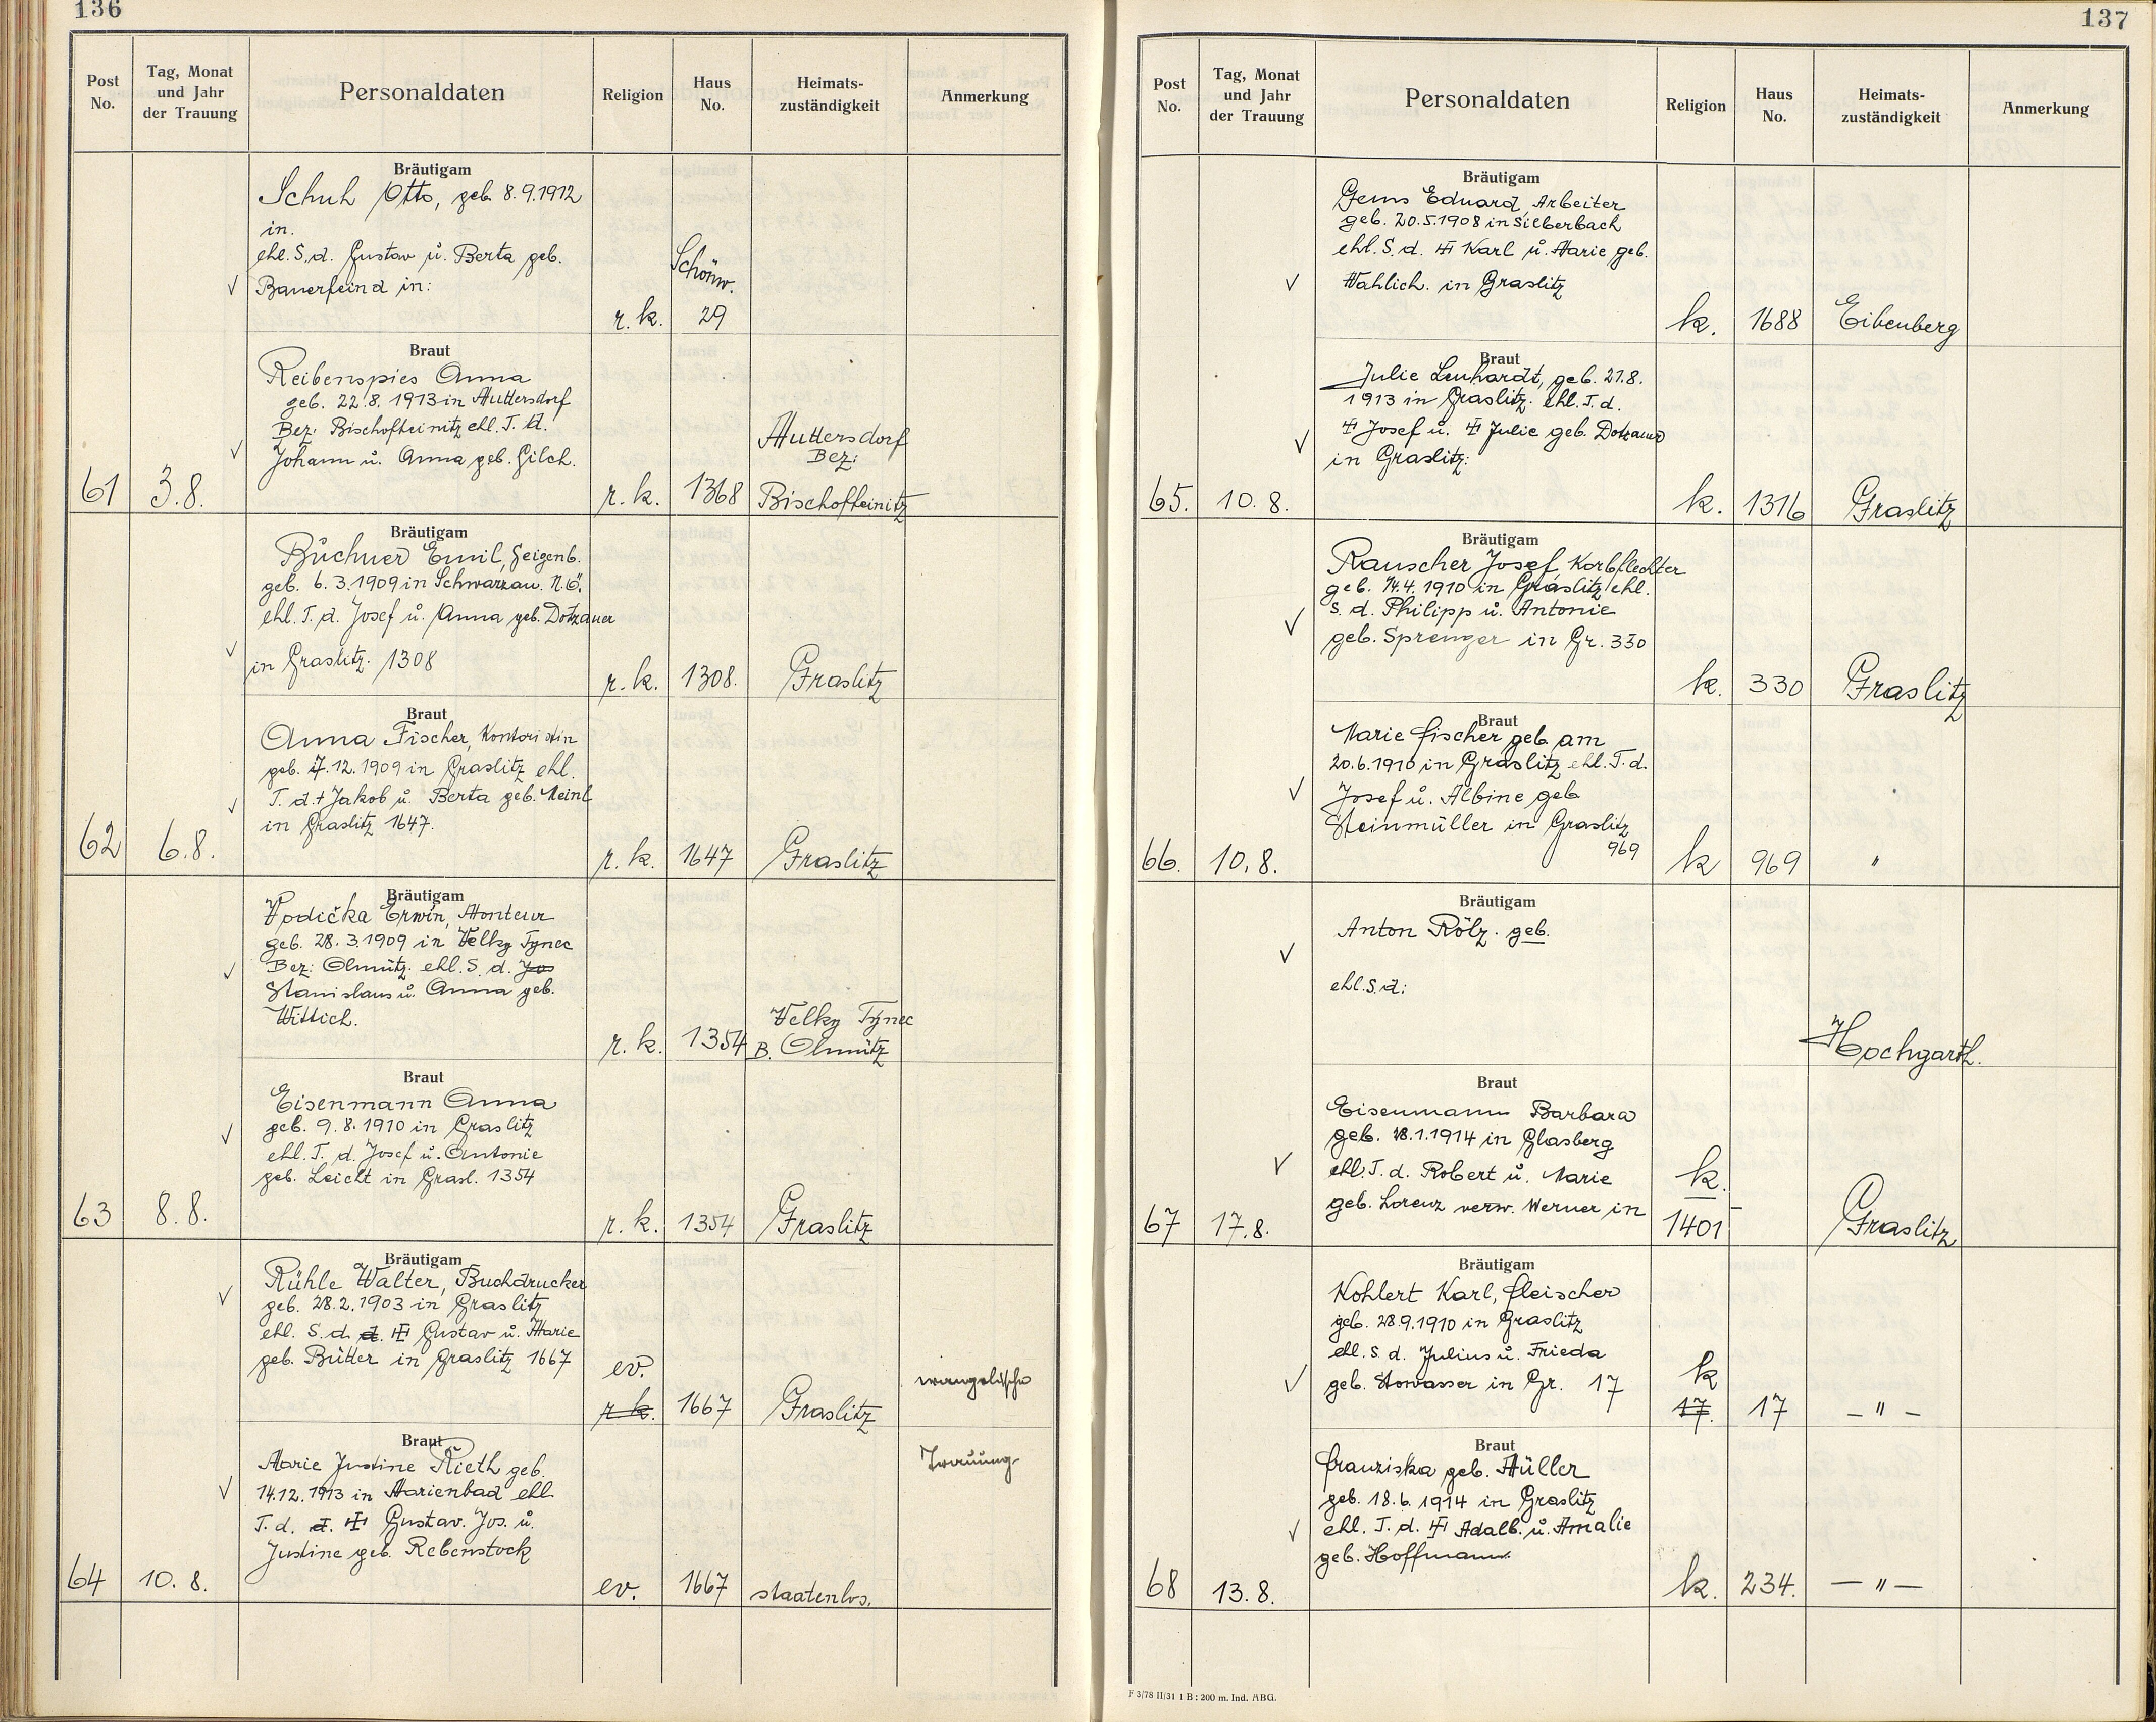 136
Post No.
Tag, Monat und Jahr der Trauung
Personaldaten
Religion
Haus No.
Heimats-zuständigkeit
Anmerkung
Bräutigam
Schuh Otto, geb. 8.9.1912
in.
ehl. S. d. Gustav u. Berta geb.
Bauerfeind in:
r. k.
Schönw.
29
Braut
Reibenspies Anna
geb. 22.8.1913 in Muttersdorf
Bez: Bischofteinitz ehl. T. d.
Johann u. Anna geb. Gilch.
61
3.8.
r. k.
1368
Muttersdorf
Bez:
Bischofteinitz
Bräutigam
Büchner Emil, Geigenb.
geb. 6.3.1909 in Schwarzau. N.Ö.
ehl. T. d. Josef u. Anna geb. Dotzauer
in Graslitz. 1308
r. k.
1308.
Graslitz
Braut
Anna Fischer, Kontoristin
geb. 7.12.1909 in Graslitz ehl.
T. d. + Jakob u. Berta geb. Meinl
in Graslitz 1647.
62
6.8.
r. k.
1647
Graslitz
Bräutigam
Vodička Erwin, Monteur
geb. 28.3.1909 in Velky Tynec
Bez: Olmütz. ehl. S. d. Jos
Stanislaus u. Anna geb.
Wittich.
r. k.
1354
Velky Tynec
B. Olmütz
Braut
Eisenmann Anna
geb. 9.8.1910 in Graslitz
ehl. T. d. Josef u. Antonie
geb. Leicht in Grasl. 1354
63
8.8.
r. k.
1354
Graslitz
Bräutigam
Rühle Walter, Buchdrucker
geb. 28.2.1903 in Graslitz
ehl. S. d. d. ‡ Gustav u. Marie
geb. Bütter in Graslitz 1667
ev.
r. k.
1667
Graslitz
evangelische
Braut
Marie Justine Rieth geb.
14.12.1913 in Marienbad ehl.
T. d. d. ‡ Gustav. Jos. u.
Justine geb. Rebenstock
64
10.8.
ev.
1667
staatenlos.
Trauung
137
Post No.
Tag, Monat und Jahr der Trauung
Personaldaten
Religion
Haus No.
Heimats-zuständigkeit
Anmerkung
Bräutigam
Gems Eduard, Arbeiter
geb. 20.5.1908 in Silberbach
ehl. S. d. ‡ Karl u. Marie geb.
Wahlich. in Graslitz
k.
1688
Eibenberg
Braut
Julie Lenhardt, geb. 21.8.
1913 in Graslitz. ehl. T. d.
‡ Josef u. ‡ Julie geb. Dotzauer
in Graslitz:
65.
10.8.
k.
1316
Graslitz
Bräutigam
Rauscher Josef Korbflechter
geb. 14.4.1910 in Graslitz ehl.
S. d. Philipp u. Antonie
geb. Sprenger in Gr. 330
k.
330
Graslitz
Braut
Marie Fischer geb. am
20.6.1910 in Graslitz ehl. T. d.
Josef u. Albine geb
Steinmüller in Graslitz
969
66.
10.8.
k
969
"
Bräutigam
Anton Rölz. geb.
ehl. S. d:
Hochgarth.
Braut
Eisenmann Barbara
geb. 18.1.1914 in Glasberg
ehl. T. d. Robert u. Marie
geb. Lorenz verw. Werner in
67
17.8.
k.
1401
Graslitz
Bräutigam
Kohlert Karl, Fleischer
geb. 28.9.1910 in Graslitz
ehl. S. d. Julius u. Frieda
geb. Stowasser in Gr. 17
k
17.
17
– " –
Braut
Franziska geb. Müller
geb. 18.6.1914 in Graslitz
ehl. T. d. ‡ Adalb. u. Amalie
geb. Hoffmann.
68
13.8.
k.
234.
– " –
F 3/78 II/31 1 B : 200 m. Ind. ABG.